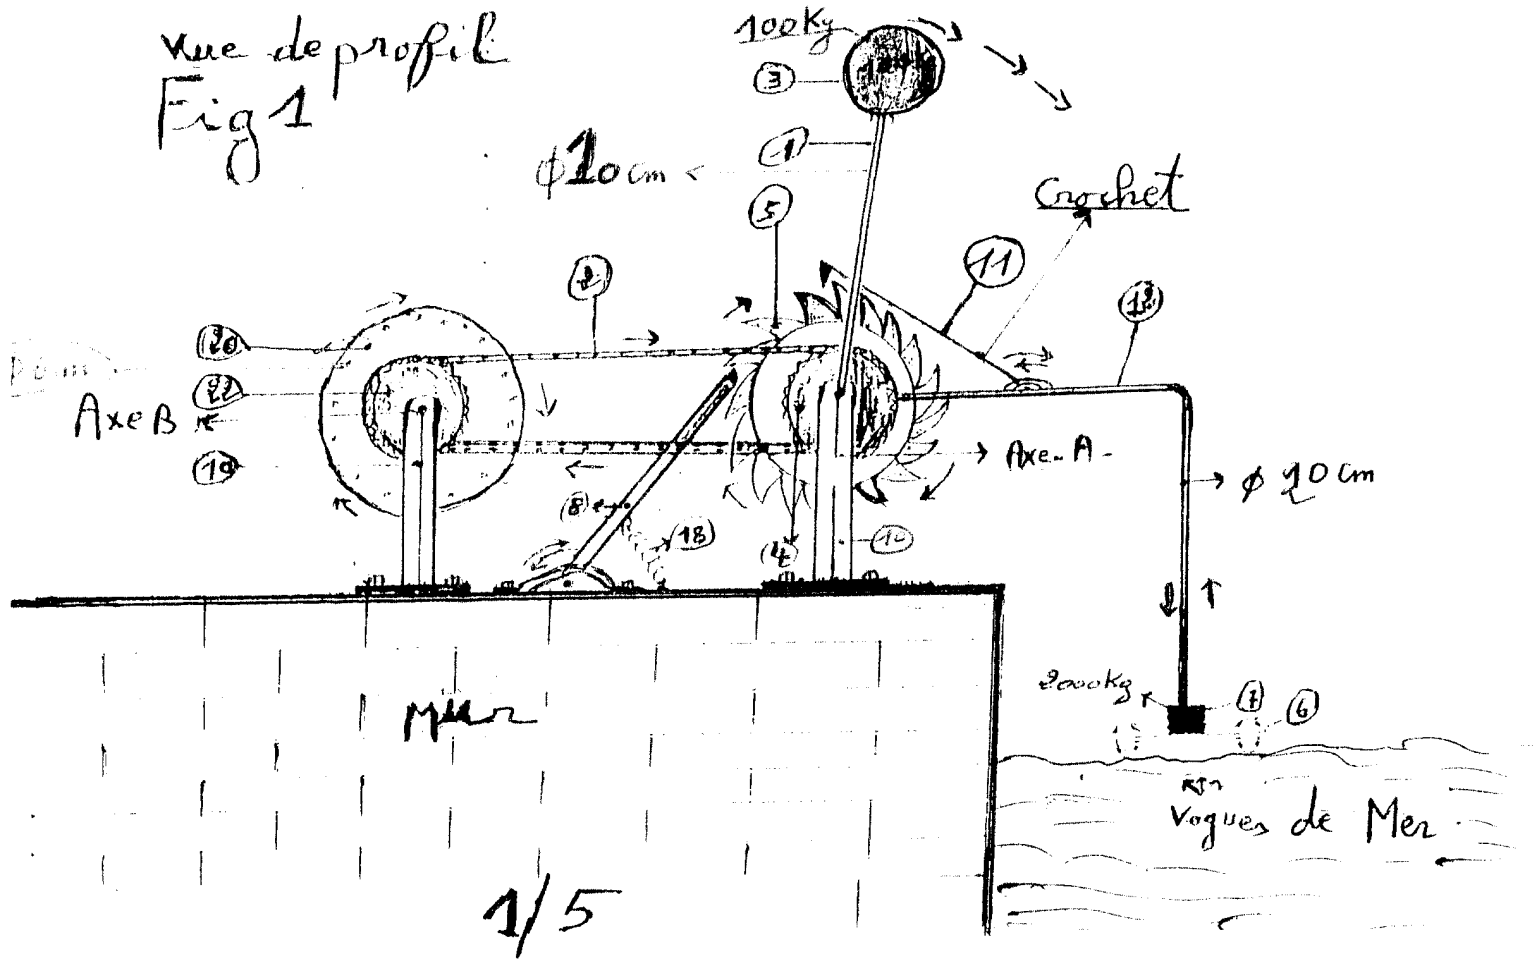 Vue de profil
Fig 1
100Kg
3
1
φ10cm
5
Crochet
11
2
12
20
22
Axe B
19
Axe-A-
φ 10cm
8
18
4
10
2000Kg
7
6
Mur
Vagues de Mer
1/5